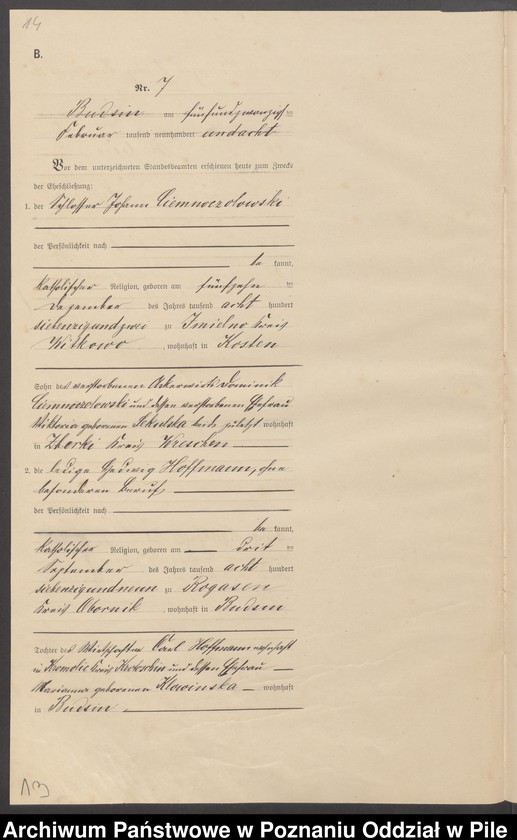 14
B.
Nr. 7
Budsin am fünfundzwanzigsten
Februar tausend neunhundert undacht
Vor dem unterzeichneten Standesbeamten erschienen heute zum Zwecke
der Eheschließung:
1. der Schlosser Johann Ciemnoczolowski
der Persönlichkeit nach
be kannt,
katholischer Religion, geboren am fünfzehn ten
Dezember des Jahres tausend acht hundert
siebenzigundzwei zu Imielno Kreis
Witkowo, wohnhaft in Kosten
Sohn des verstorbenen Ackerwirts Dominik
Ciemnoczolowski und dessen verstorbenen Ehefrau
Wiktoria geborenen Sekulska beide zuletzt wohnhaft
in Zborki Kreis Wreschen
2. die ledige Hedwig Hoffmann, ohne
besonderen Beruf
der Persönlichkeit nach
be kannt,
katholischer Religion, geboren am drit ten
September des Jahres tausend acht hundert
siebenzigundneun zu Rogasen
Kreis Obornik, wohnhaft in Budsin
Tochter des Wirtschafters Carl Hoffmann wohnhaft
in Kreis und dessen Ehefrau
Marianna geborenen Klawinska wohnhaft
in Budsin
13
Archiwum Państwowe w Poznaniu Oddział w Pile